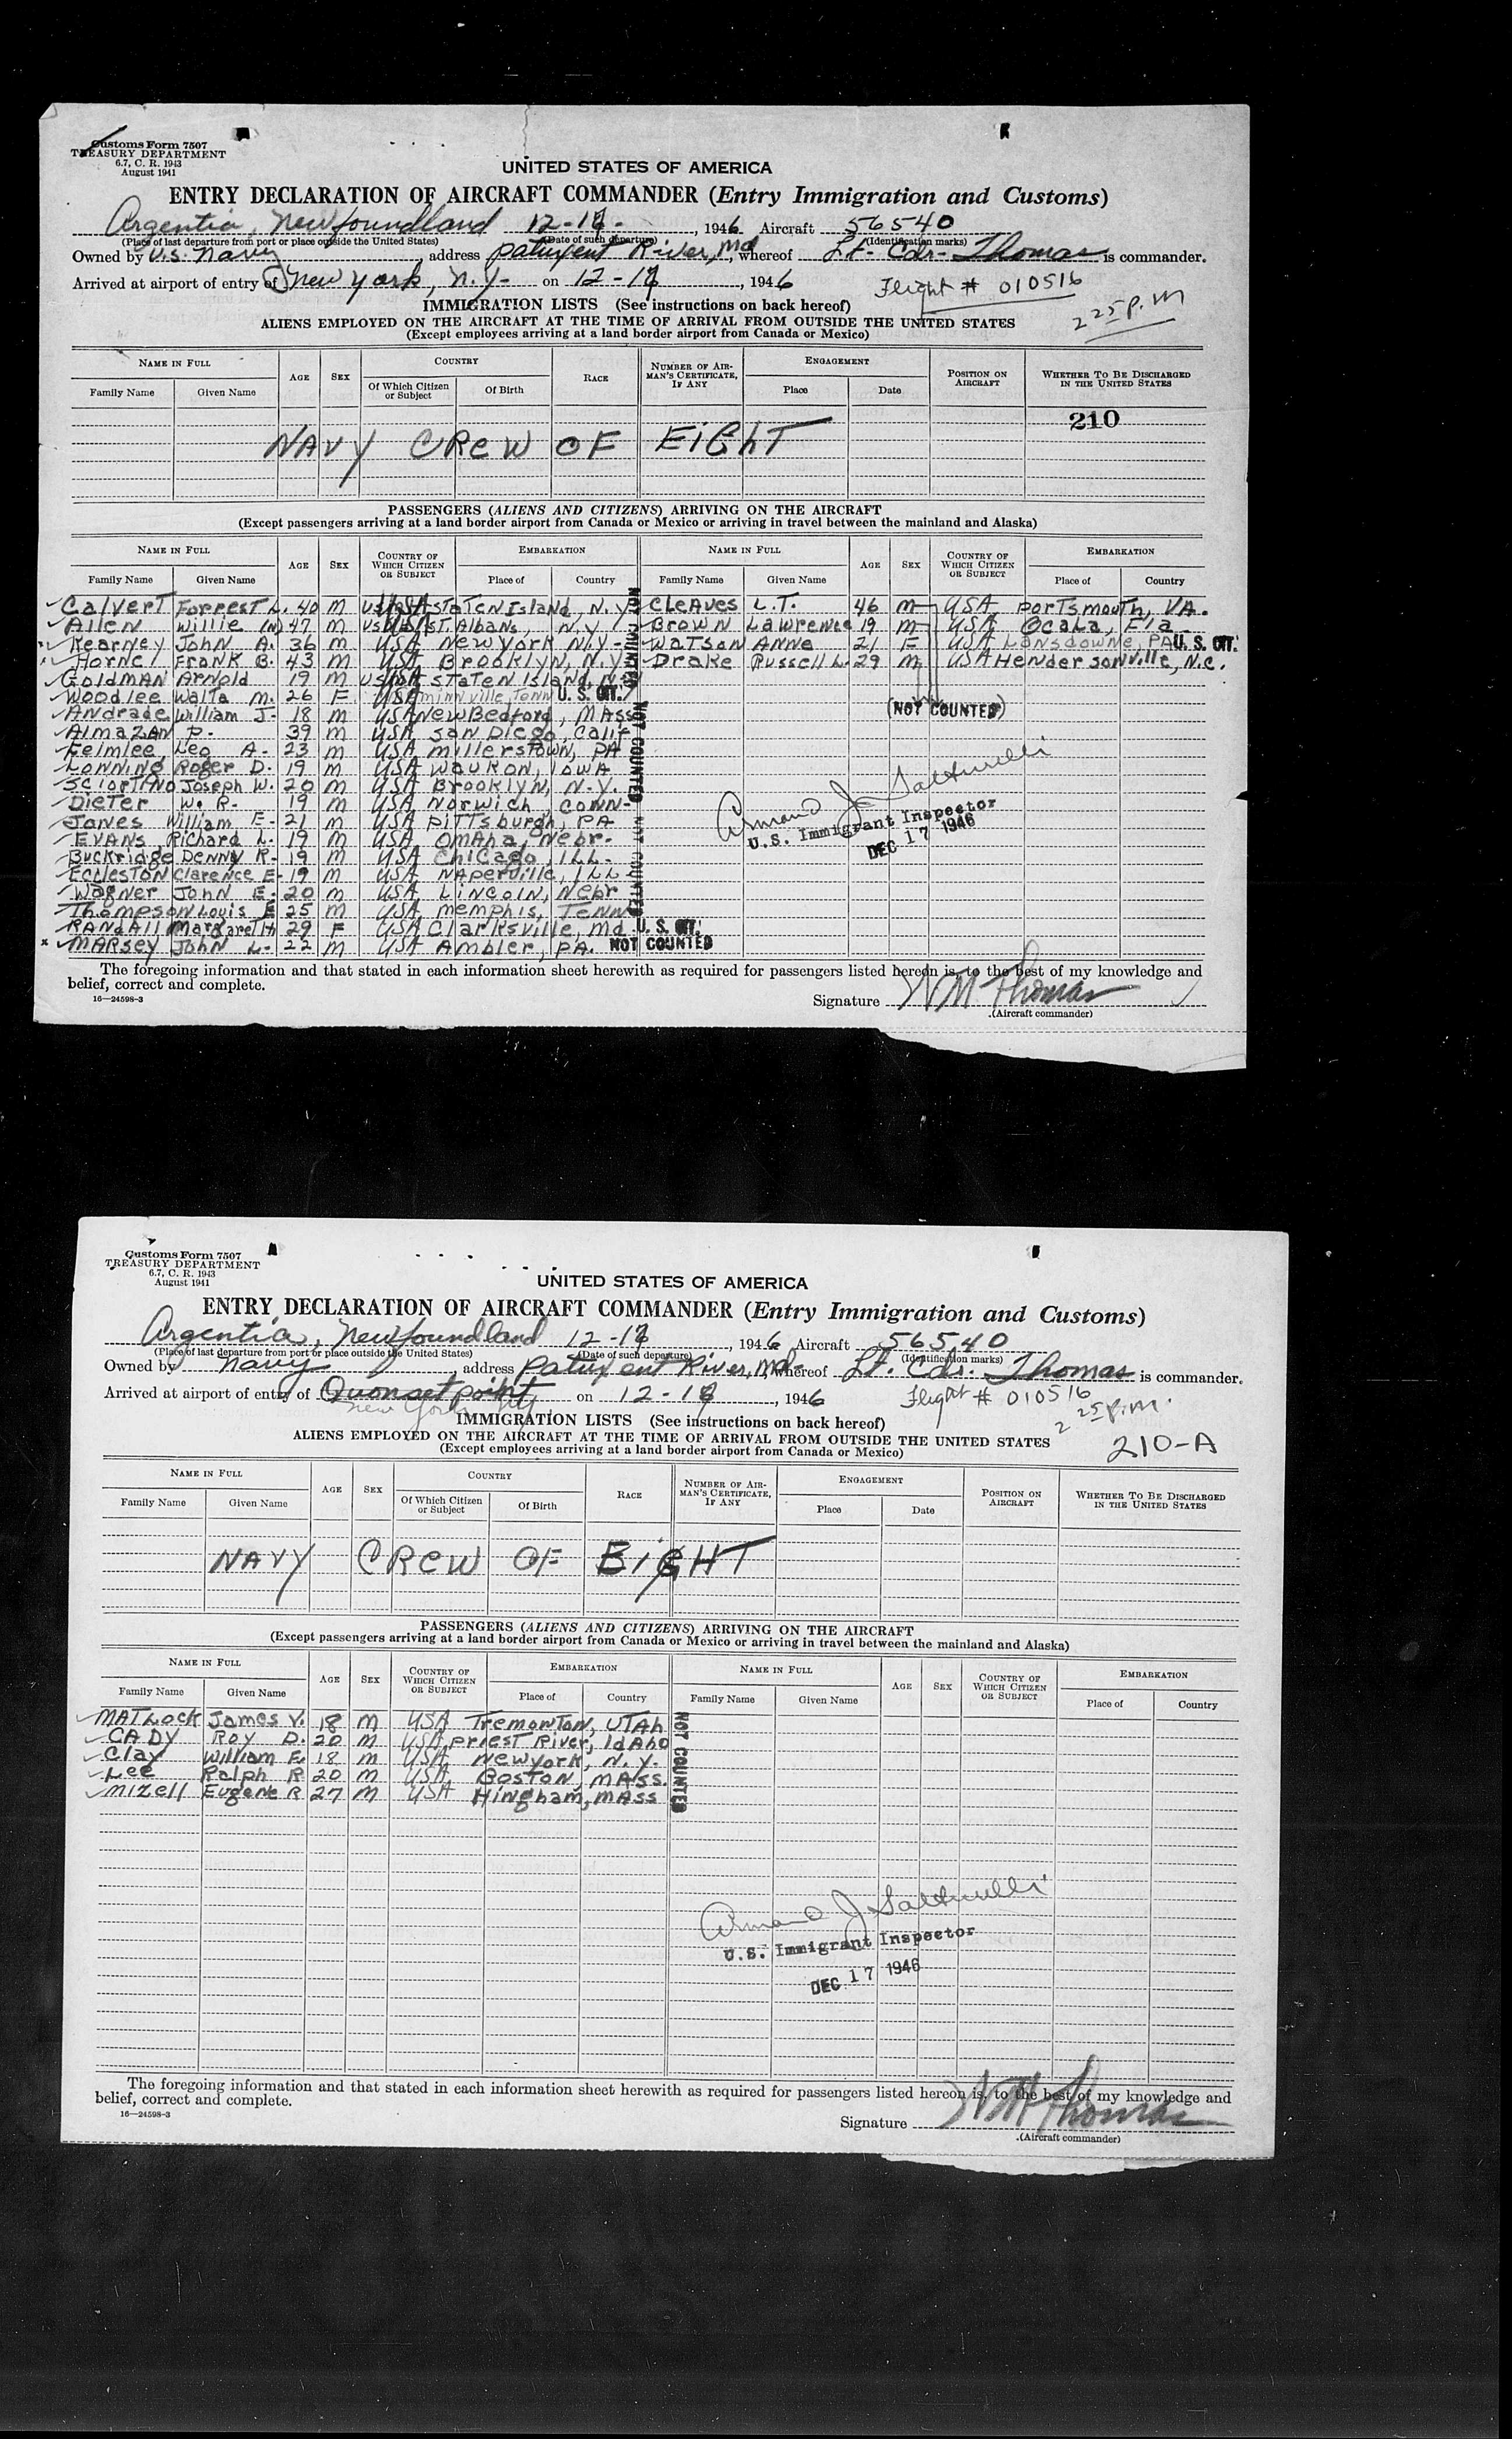 Customs Form 7507
TREASURY DEPARTMENT
6.7, C. R. 1943
August 1941
UNITED STATES OF AMERICA
ENTRY DECLARATION OF AIRCRAFT COMMANDER (Entry Immigration and Customs)
Argentia, Newfoundland 12-17-, 1946 Aircraft 56540
(Place of last departure from port or place outside the United States) (Date of such departure) (Identification marks)
Owned by U.S. Navy, address Patuxent River, Md, whereof Lt. Cdr. Thomas is commander.
Arrived at airport of entry of New York, N.Y. on 12-17, 1946 Flight # 010516
2 25 P.M
IMMIGRATION LISTS (See instructions on back hereof)
ALIENS EMPLOYED ON THE AIRCRAFT AT THE TIME OF ARRIVAL FROM OUTSIDE THE UNITED STATES
(Except employees arriving at a land border airport from Canada or Mexico)
NAME IN FULL AGE SEX COUNTRY RACE NUMBER OF AIRMAN'S CERTIFICATE, IF ANY ENGAGEMENT POSITION ON AIRCRAFT WHETHER TO BE DISCHARGED IN THE UNITED STATES
Family Name Given Name Of Which Citizen or Subject Of Birth Place Date
210
NAVY CREW OF EIGHT
PASSENGERS (ALIENS AND CITIZENS) ARRIVING ON THE AIRCRAFT
(Except passengers arriving at a land border airport from Canada or Mexico or arriving in travel between the mainland and Alaska)
NAME IN FULL AGE SEX COUNTRY OF WHICH CITIZEN OR SUBJECT EMBARKATION NAME IN FULL AGE SEX COUNTRY OF WHICH CITIZEN OR SUBJECT EMBARKATION
Family Name Given Name Place of Country Family Name Given Name Place of Country
Calvert Forrest L. 40 M USA Staten Island, N.Y. Cleaves L.T. 46 M USA Portsmouth, VA.
Allen Willie (N) 47 M USA St. Albans, N.Y. Brown Lawrence 19 M USA Ocala, Fla
Kearney John A. 36 M USA New York N.Y- Watson Anne 21 F USA Lansdowne, PA U. S. CIT.
Horne Frank B. 43 M USA Brooklyn, N.Y. Drake Russell L. 29 M USA Hendersonville, N.C.
Goldman Arnold 19 M USA Staten Island, N.Y.
Woodlee Walta M. 26 F USA minnville, Tenn U. S. CIT.
Andrade William J- 18 M USA New Bedford, Mass
(NOT COUNTED)
Almazan P- 39 M USA San Diego, Calif
Felmlee Leo A- 23 M USA Millerstown, PA
Lonning Roger D. 19 M USA Waukon, Iowa
Sciortino Joseph W. 20 M USA Brooklyn, N.Y.
Dieter W. R- 19 M USA Norwich, Conn-
Jones William E- 21 M USA Pittsburgh, PA
Evans Richard L. 19 M USA Omaha, Nebr-
Buckridge Denny R- 19 M USA Chicago, ILL-
Eccleston Clarence E- 19 M USA Naperville, ILL
Wagner John E. 20 M USA Lincoln, Nebr
Thompson Louis E 25 M USA Memphis, Tenn
Randall Margaret H 29 F USA Clarksville, Md U. S. CIT.
x Marsey John L- 22 M USA Ambler, PA. NOT COUNTED
NOT COUNTED
NOT COUNTED
NOT COUNTED
Armand J.
U.S. Immigrant Inspector
DEC 17 1946
The foregoing information and that stated in each information sheet herewith as required for passengers listed hereon is, to the best of my knowledge and
belief, correct and complete.
16—24598-3
Signature W M Thomas
(Aircraft commander)
Customs Form 7507
TREASURY DEPARTMENT
6.7, C. R. 1943
August 1941
UNITED STATES OF AMERICA
ENTRY DECLARATION OF AIRCRAFT COMMANDER (Entry Immigration and Customs)
Argentia, Newfoundland 12-17, 1946 Aircraft 56540
(Place of last departure from port or place outside the United States) (Date of such departure) (Identification marks)
Owned by Navy, address Patuxent River, Md- whereof Lt. Cdr. Thomas is commander.
Arrived at airport of entry of Quonset point on 12-17, 1946 Flight # 010516
New York NY
2 25 P.M.
IMMIGRATION LISTS (See instructions on back hereof)
ALIENS EMPLOYED ON THE AIRCRAFT AT THE TIME OF ARRIVAL FROM OUTSIDE THE UNITED STATES
(Except employees arriving at a land border airport from Canada or Mexico)
210-A
NAME IN FULL AGE SEX COUNTRY RACE NUMBER OF AIRMAN'S CERTIFICATE, IF ANY ENGAGEMENT POSITION ON AIRCRAFT WHETHER TO BE DISCHARGED IN THE UNITED STATES
Family Name Given Name Of Which Citizen or Subject Of Birth Place Date
NAVY CREW OF EIGHT
PASSENGERS (ALIENS AND CITIZENS) ARRIVING ON THE AIRCRAFT
(Except passengers arriving at a land border airport from Canada or Mexico or arriving in travel between the mainland and Alaska)
NAME IN FULL AGE SEX COUNTRY OF WHICH CITIZEN OR SUBJECT EMBARKATION NAME IN FULL AGE SEX COUNTRY OF WHICH CITIZEN OR SUBJECT EMBARKATION
Family Name Given Name Place of Country Family Name Given Name Place of Country
Matlock James V. 18 M USA Tremonton, Utah
Cady Roy D. 20 M USA Priest River, Idaho
Clay William E. 18 M USA New York, N.Y.
Lee Ralph R 20 M USA Boston, Mass.
Mizell Eugene R 27 M USA Hingham, Mass
NOT COUNTED
Armand J.
U.S. Immigrant Inspector
DEC 17 1946
The foregoing information and that stated in each information sheet herewith as required for passengers listed hereon is, to the best of my knowledge and
belief, correct and complete.
16—24598-3
Signature W M Thomas
(Aircraft commander)